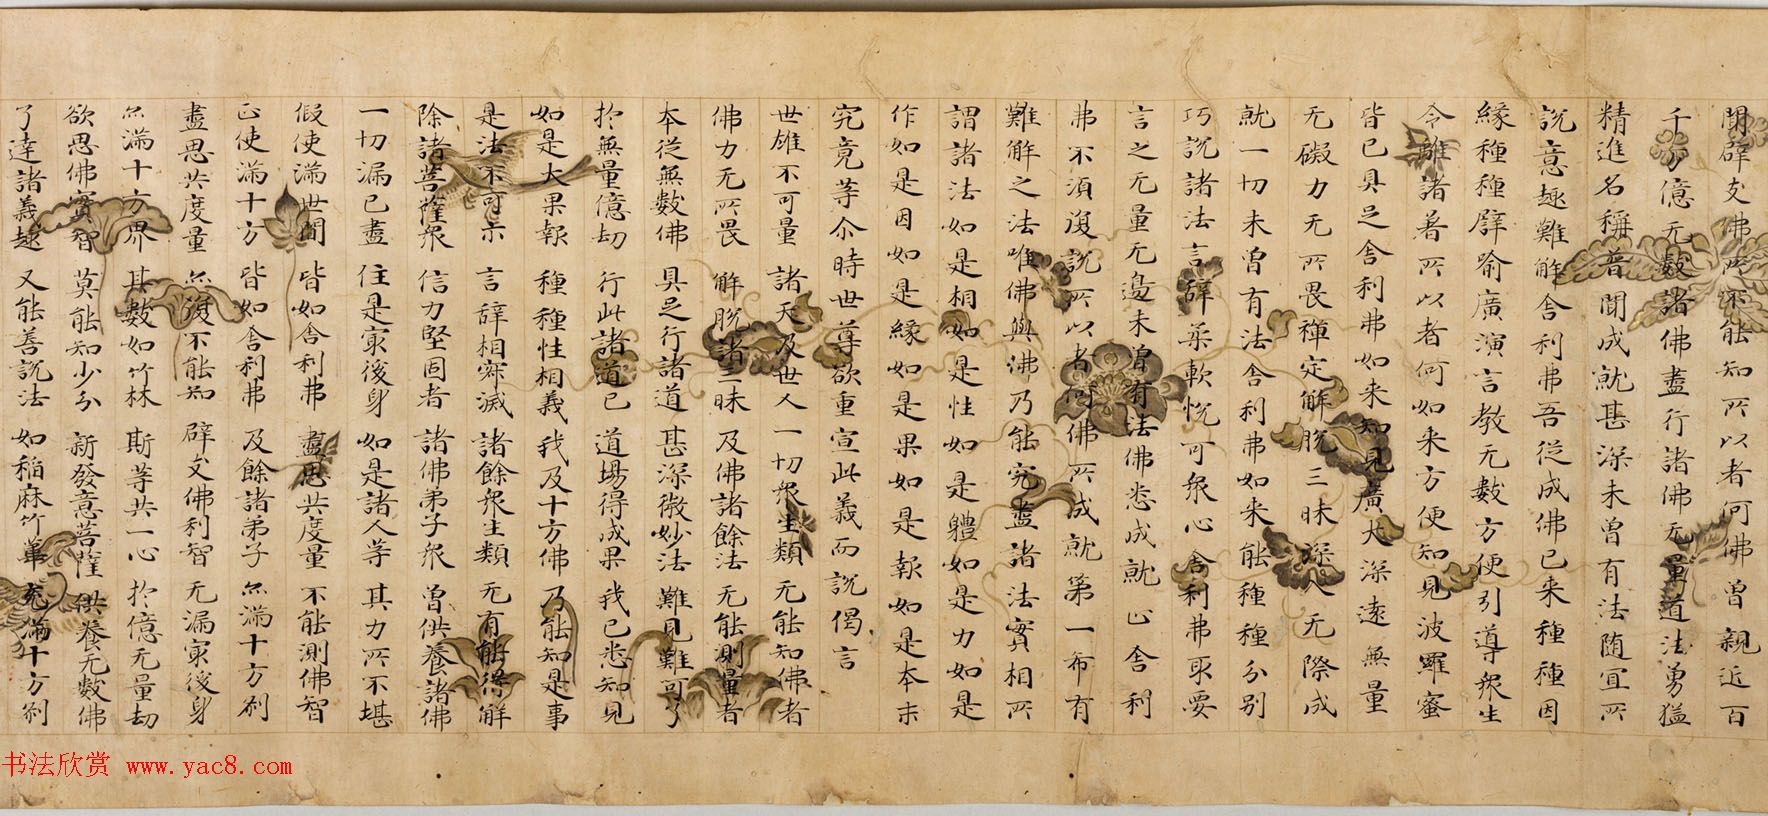 聞辟支佛所不能知所以者何佛曾親近百
千万億无數諸佛盡行諸佛无量道法勇猛
精進名稱普聞成就甚深未曾有法随冝所
說意趣難解舍利弗吾従成佛已来種種因
緣種種辟喻廣演言教无數方便引導衆生
令離諸著所以者何如来方便知見波羅蜜
皆已具足舍利弗如来知見廣大深遠無量
无礙力无所畏禪定解脫三昧深入无際成
就一切未曾有法舍利弗如来能種種分別
巧說諸法言辞柔軟悅可衆心舍利弗取要
言之无量无邊未曾有法佛悉成就止舍利
弗不湏復說所以者何佛所成就第一希有
難解之法唯佛與佛乃能究盡諸法實相所
謂諸法如是相如是性如是體如是力如是
作如是因如是緣如是果如是報如是本末
究竟等尒時世尊欲重宣此義而說偈言
世雄不可量 諸天及世人 一切衆生類 无能知佛者
佛力无所畏 解脫諸三昧 及佛諸餘法 无能測量者
本從無數佛 具足行諸道 甚深微妙法 難見難可了
扵無量億劫 行此諸道已 道場得成果 我已悉知見
如是大果報 種種性相義 我及十方佛 乃能知是事
是法不可示 言辞相寂滅 諸餘衆生類 无有能得解
除諸菩薩衆 信力堅固者 諸佛弟子衆 曾供養諸佛
一切漏已盡 住是㝡後身 如是諸人等 其力所不堪
假使滿世間 皆如舍利弗 盡思共度量 不能測佛智
正使滿十方 皆如舍利弗 及餘諸弟子 亦滿十方刹
盡思共度量 亦復不能知 辟支佛利智 无漏㝡後身
亦滿十方界 其數如竹林 斯等共一心 扵億无量劫
欲思佛實智 莫能知少分 新發意菩薩 供養无數佛
了達諸義趣 又能善說法 如稻麻竹葦 充滿十方刹
书法欣赏 www.yac8.com